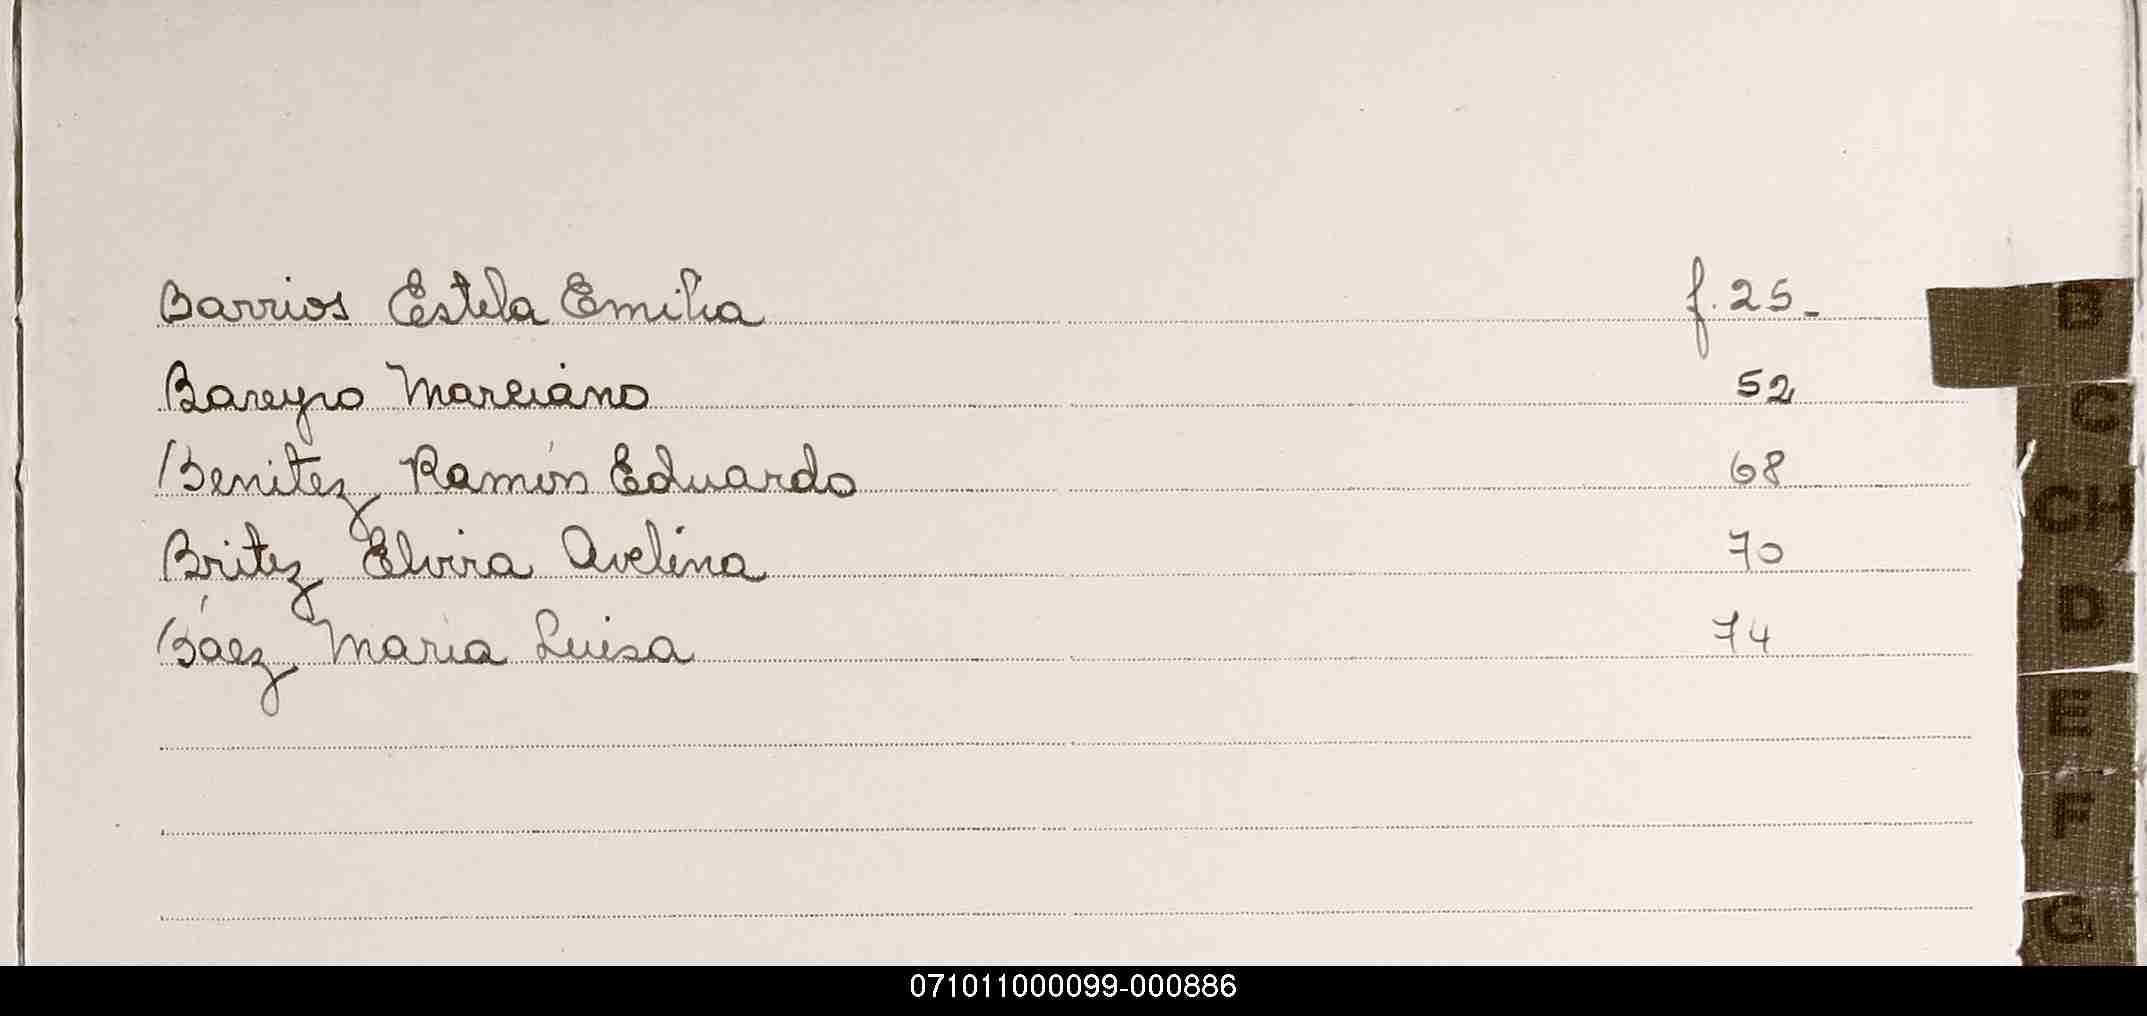 Barrios Estela Emilia f. 25.-
Bareyro Marciano 52
Benitez Ramón Eduardo 68
Britez Elvira Avelina 70
Báez Maria Luisa 74
B
C
CH
D
E
F
G
071011000099-000886